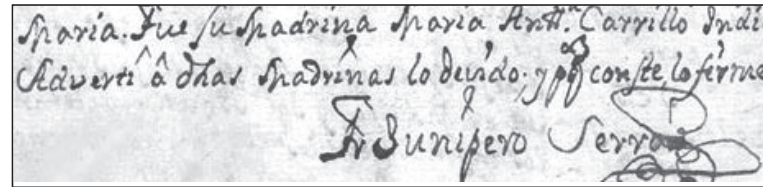 Maria. Fue su Madrina Maria Antt.ª Carrillo Indi
Adverti â dhas Madrinas lo devido. y pq conste, lo firme
Fr Junipero Serra